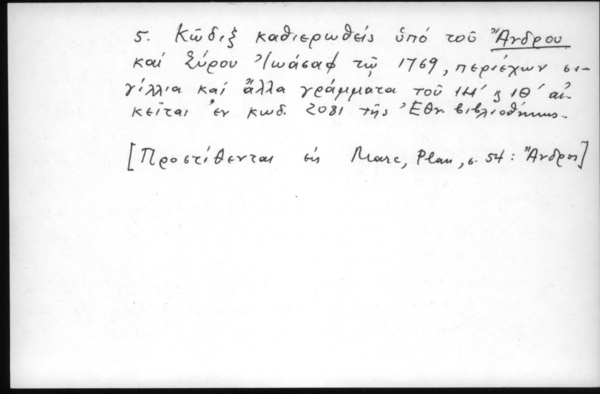 5. Κῶδιξ καθιερωθείς ὑπό τοῦ Ἄνδρου
καί Σύρου Ἰωάσαφ τῷ 1769, περιέχων σι-
γίλλια καί ἄλλα γράμματα τοῦ ΙΗ' & ΙΘ' αἰ.
κεῖται ἐν κωδ. 2081 τῆς Ἐθν. βιβλιοθήκης.
[Προστίθενται εἰς Marc, Plan, σ. 54: Ἄνδρος]